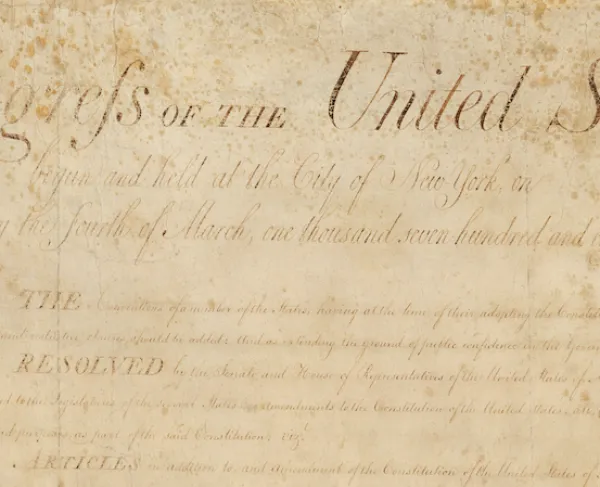 greſs OF THE United S
begun and held at the City of New York, on
y the fourth of March, one thousand seven hundred and
THE Conventions of a number of the States, having at the time of their adopting the Constit
and restrictive clauses should be added: And as extending the ground of public confidence in the Gover
RESOLVED by the Senate and House of Representatives of the United States of A
d to the Legislatures of the several States, as amendments to the Constitution of the United States, all,
nd purposes, as part of the said Constitution; viz.t
ARTICLES in addition to, and Amendment of the Constitution of the United States of